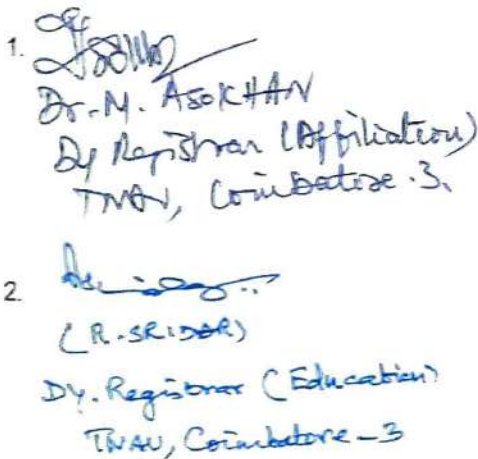 1.
Dr. M. ASOKHAN
Dy Registrar (Affiliation)
TNAU, Coimbatore.3.
2.
(R. SRIDAR)
Dy. Registrar (Education)
TNAU, Coimbatore-3